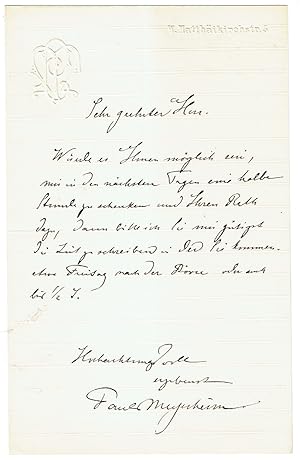 W. Matthäikirchstr. 6
Sehr geehrter Herr.
Würde es Ihnen möglich sein,
mir in den nächsten Tagen eine halbe
Stunde zu schenken und Ihren Rath
dazu, dann bitte ich Sie mir gütigst
die Zeit zu schreiben in der Sie kommen.
etwa Freitag nach der Börse oder auch
bis 1/2 7.
Hochachtungsvoll
ergebenst
Paul Meyerheim